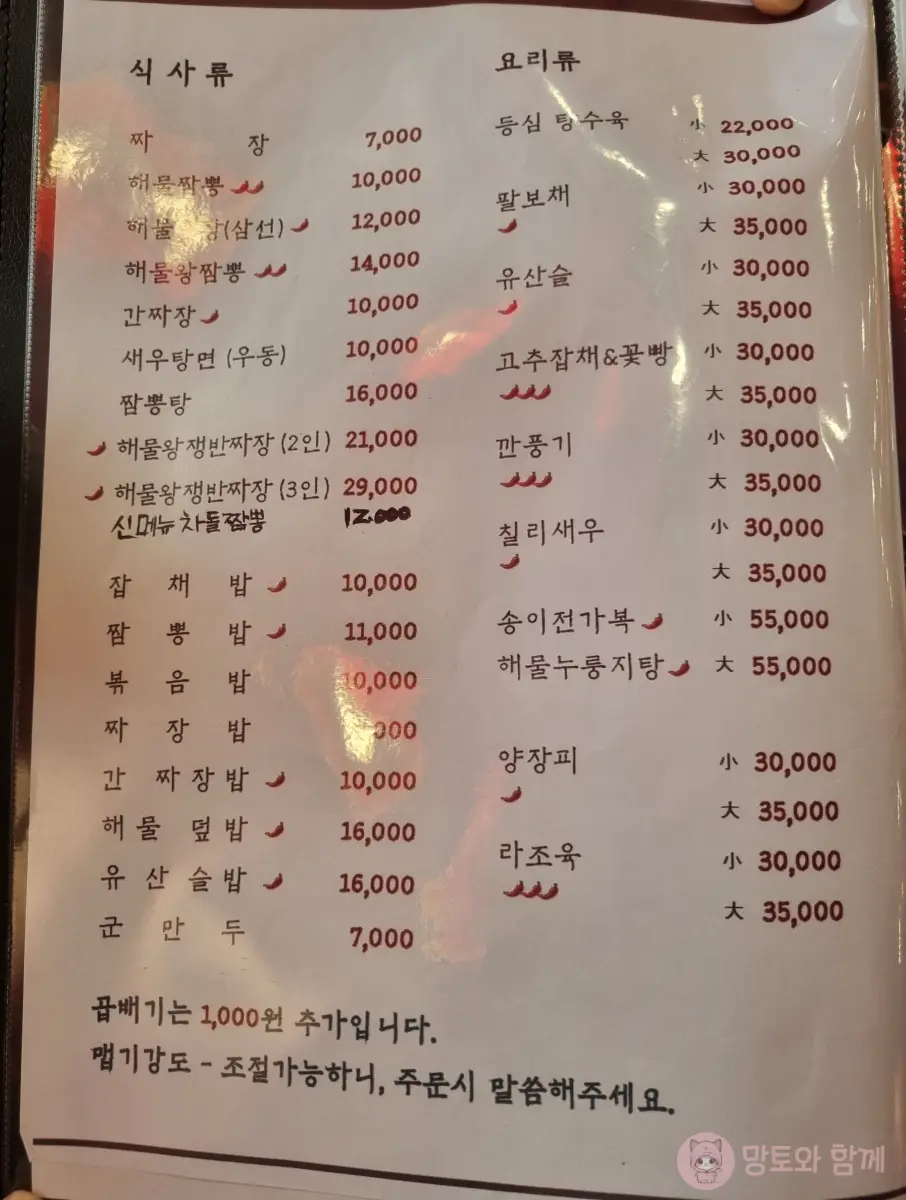 식사류
짜장 7,000
해물짬뽕 10,000
(삼선) 12,000
해물왕짬뽕 14,000
간짜장 10,000
새우탕면 (우동) 10,000
짬뽕탕 16,000
해물왕쟁반짜장 (2인) 21,000
해물왕쟁반짜장 (3인) 29,000
신메뉴 차돌짬뽕 12.000
잡채밥 10,000
짬뽕밥 11,000
볶음밥 10,000
짜장밥
간짜장밥 10,000
해물덮밥 16,000
유산슬밥 16,000
군만두 7,000
요리류
등심 탕수육 小 22,000
大 30,000
팔보채 小 30,000
大 35,000
유산슬 小 30,000
大 35,000
고추잡채&꽃빵 小 30,000
大 35,000
깐풍기 小 30,000
大 35,000
칠리새우 小 30,000
大 35,000
송이전가복 小 55,000
해물누룽지탕 大 55,000
양장피 小 30,000
大 35,000
라조육 小 30,000
大 35,000
곱배기는 1,000원 추가입니다.
맵기강도 - 조절가능하니, 주문시 말씀해주세요.
망토와 함께